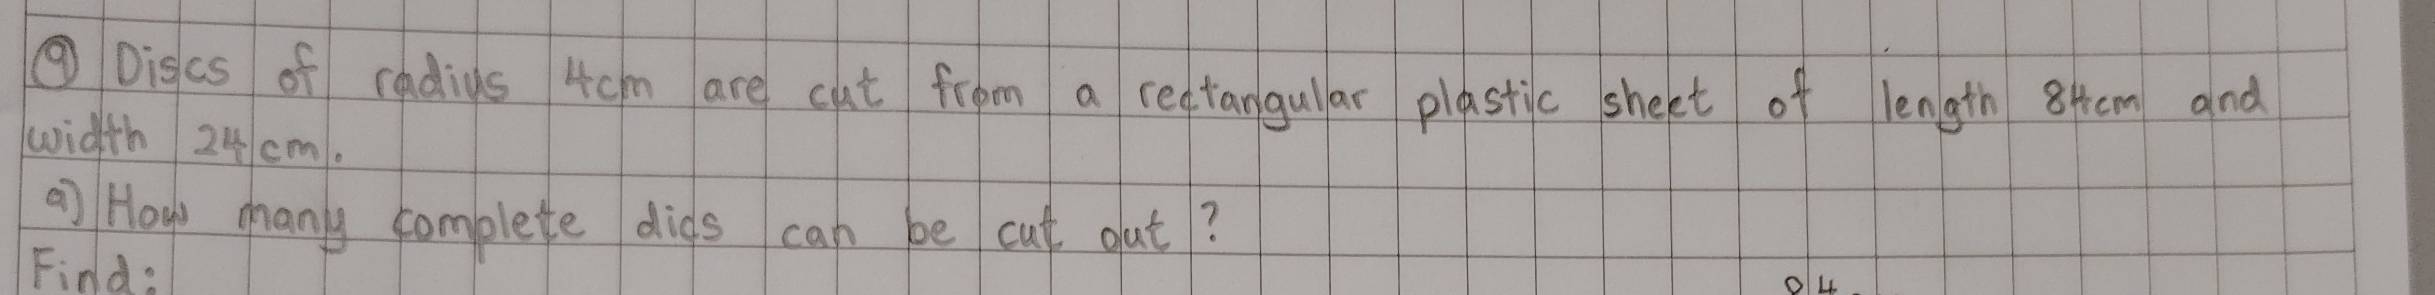 ⑨ Discs of radius 4cm are cut from a rectangular plastic sheet of length 84cm and
width 24cm.
a) How many complete dics can be cut out?
Find:
84